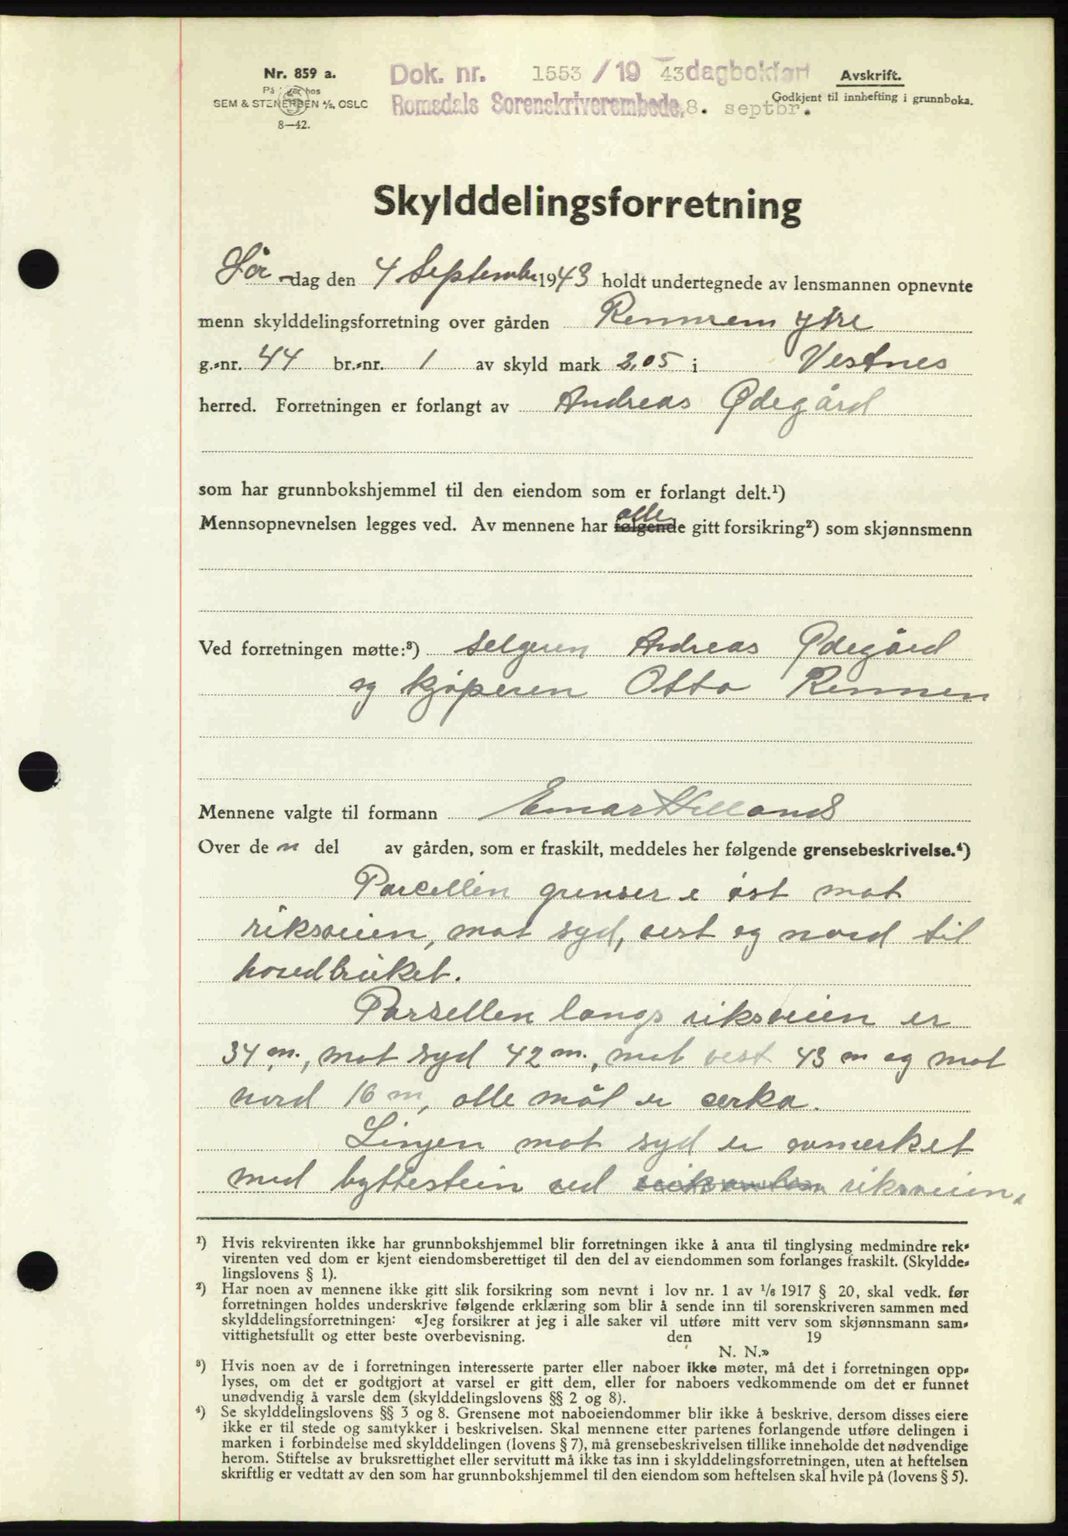 Nr. 859 a.
På lager hos
SEM & STENERSEN A/S, OSLO
8—42.
Dok. nr. 1553 / 19 43 dagbokført
Romsdals Sorenskriverembede, 8. septbr.
Avskrift.
Godkjent til innhefting i grunnboka.
Skylddelingsforretning
Lør-dag den 4 September 1943 holdt undertegnede av lensmannen opnevnte
menn skylddelingsforretning over gården Remmem ytre
g.-nr. 44 br.-nr. 1 av skyld mark 2,05 i Vestnes
herred. Forretningen er forlangt av Andreas Ødegård
som har grunnbokshjemmel til den eiendom som er forlangt delt.¹)
alle
Mennsopnevnelsen legges ved. Av mennene har følgende gitt forsikring²) som skjønnsmenn
Ved forretningen møtte:³) Selgeren Andreas Ødegård
og kjøperen Otto Remmem
Mennene valgte til formann Einar Helland
Over de n del av gården, som er fraskilt, meddeles her følgende grensebeskrivelse.⁴)
Parcellen grenser i øst mot
riksveien, mot syd, vest og nord til
hovedbruket.
Parsellen langs riksveien er
34 m., mot syd 42 m., mot vest 43 m og mot
nord 16 m, alle mål er cirka.
Linjen mot syd er avmerket
med byttestein ved riksveien,
¹) Hvis rekvirenten ikke har grunnbokshjemmel blir forretningen ikke å anta til tinglysing medmindre rek-
virenten ved dom er kjent eiendomsberettiget til den del av eiendommen som forlanges fraskilt. (Skyldde-
lingslovens § 1).
²) Har noen av mennene ikke gitt slik forsikring som nevnt i lov nr. 1 av 1/6 1917 § 20, skal vedk. før
forretningen holdes underskrive følgende erklæring som blir å sende inn til sorenskriveren sammen med
skylddelingsforretningen: «Jeg forsikrer at jeg i alle saker vil utføre mitt verv som skjønnsmann sam-
vittighetsfullt og etter beste overbevisning. den 19
N. N.»
³) Hvis noen av de i forretningen interesserte parter eller naboer ikke møter, må det i forretningen opp-
lyses, om det er godtgjort at varsel er gitt dem, eller for naboers vedkommende om det er funnet
unødvendig å varsle dem (skylddelingslovens §§ 2 og 8).
⁴) Se skylddelingslovens §§ 3 og 8. Grensene mot naboeiendommer blir ikke å beskrive, dersom disses eiere
ikke er til stede og samtykker i beskrivelsen. Skal mennene etter partenes forlangende utføre delingen i
marken i forbindelse med skylddelingen (lovens § 7), må grensebeskrivelsen tillike inneholde det nødvendige
herom. Stiftelse av bruksrettighet eller servitutt må ikke tas inn i skylddelingsforretningen, uten at heftelsen
skriftlig er vedtatt av den som har grunnbokshjemmel til den eiendom som heftelsen skal hvile på (lovens § 5).